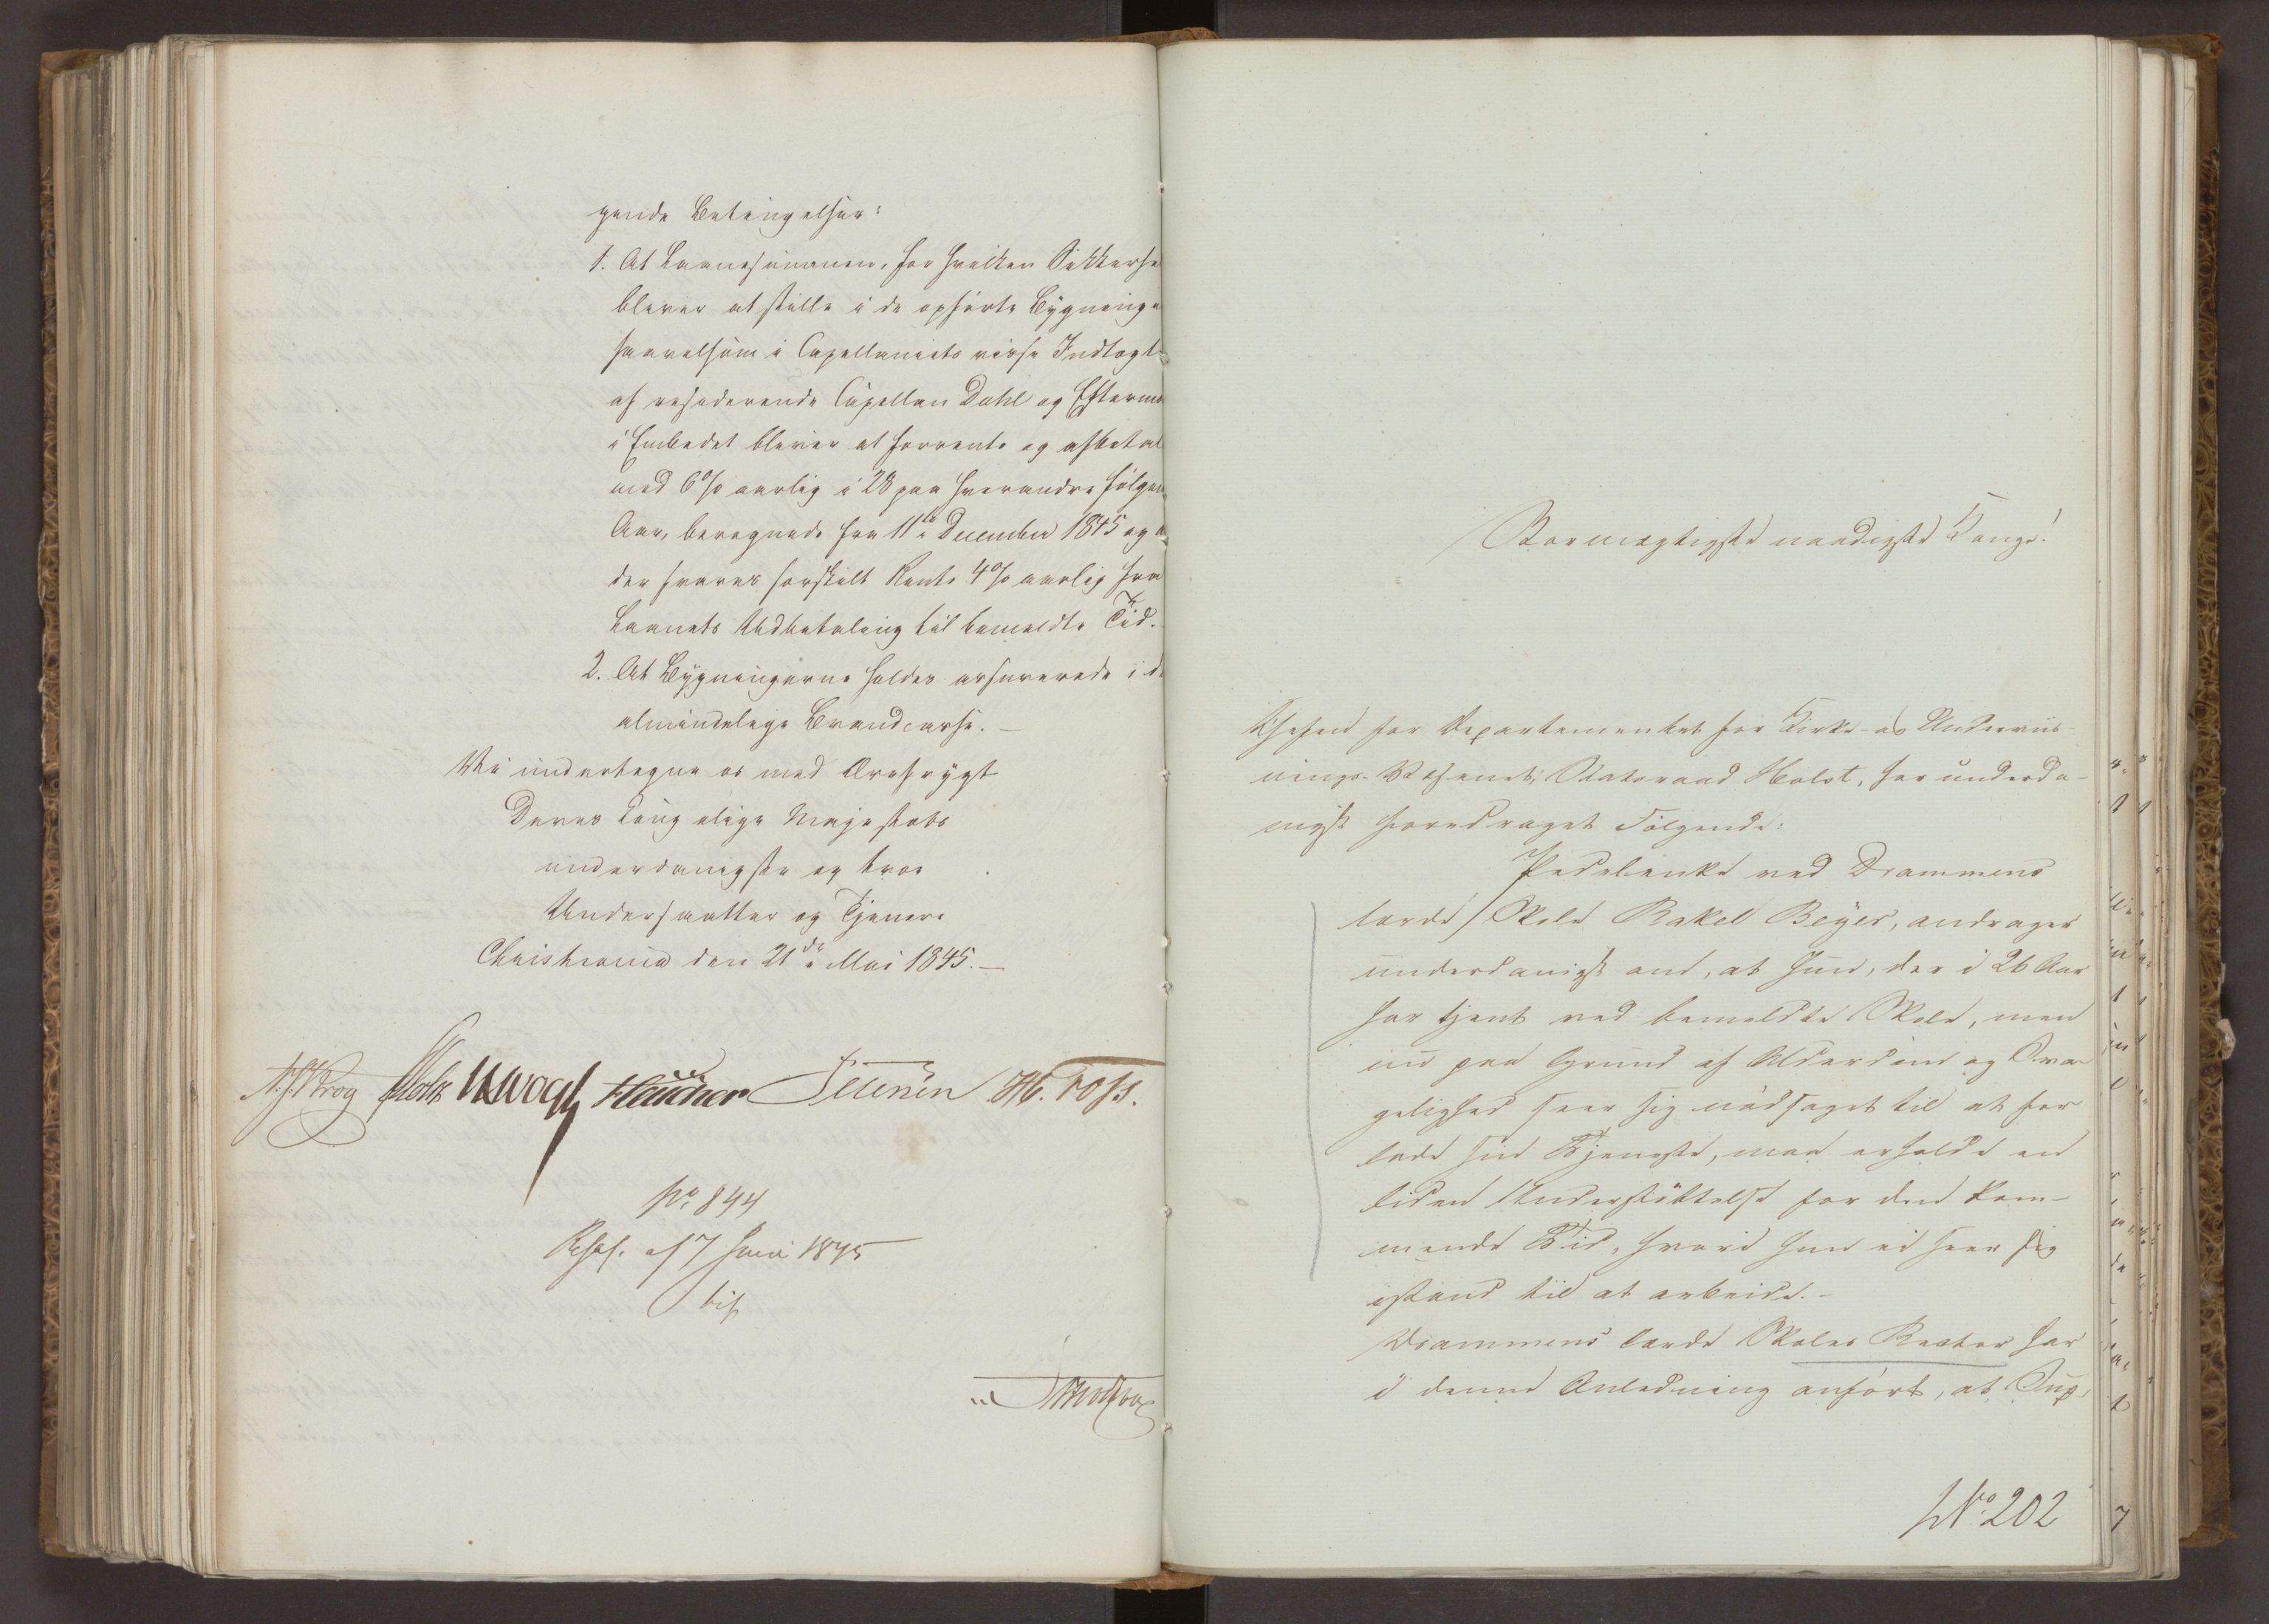 gende Betingelser:
1. At Laanesummen, for hvilken Sikkerhe
bliver at stille i de opførte Bygninge
saavelsom i Capellaniets visse Indtægt
af residerende Capellan Dahl og Efterma
i Embedet bliver at forrente og afbetal
med 6 % aarlig i 28 paa hverandre følgen
Aar, beregnede fra 11te December 1845 og
der svares forskilt Rente 4 % aarlig fra
Laanets Udbetaling til bemeldte Tid.
2. At Bygningerne holdes assurerede i d
almindelige Brandcasse. —
Vi undertegne os med Ærefrygt
Deres Kongelige Majestæts
underdanigste og troe
Undersaatter og Tjenere
Christiania den 21de Mai 1845. —
Krog Holst Vogt Petersen H. Foss.
No 844
Resol. af 7 Juni 1845
bif
Stormægtigste naadigste Konge!
Chefen for Departementet for Kirke- og Underviis-
nings-Væsenet, Statsraad Holst, har underda-
nigst foredraget Følgende:
Pedelenke ved Drammens
lærde Skole Rakel Beyer, andrager
underdanigst om, at hun, der i 26 Aar
har tjent ved bemeldte Skole, men
nu paa Grund af Alderdom og Sva-
gelighed seer sig nødsaget til at for
lade sin Tjeneste, maa erholde en
liden Understøttelse for den kom-
mende Tid, hvori hun ei seer sig
istand til at arbeide. -
Drammens lærde Skoles Rector har
i denne Anledning anført, at Sup-
No. 202